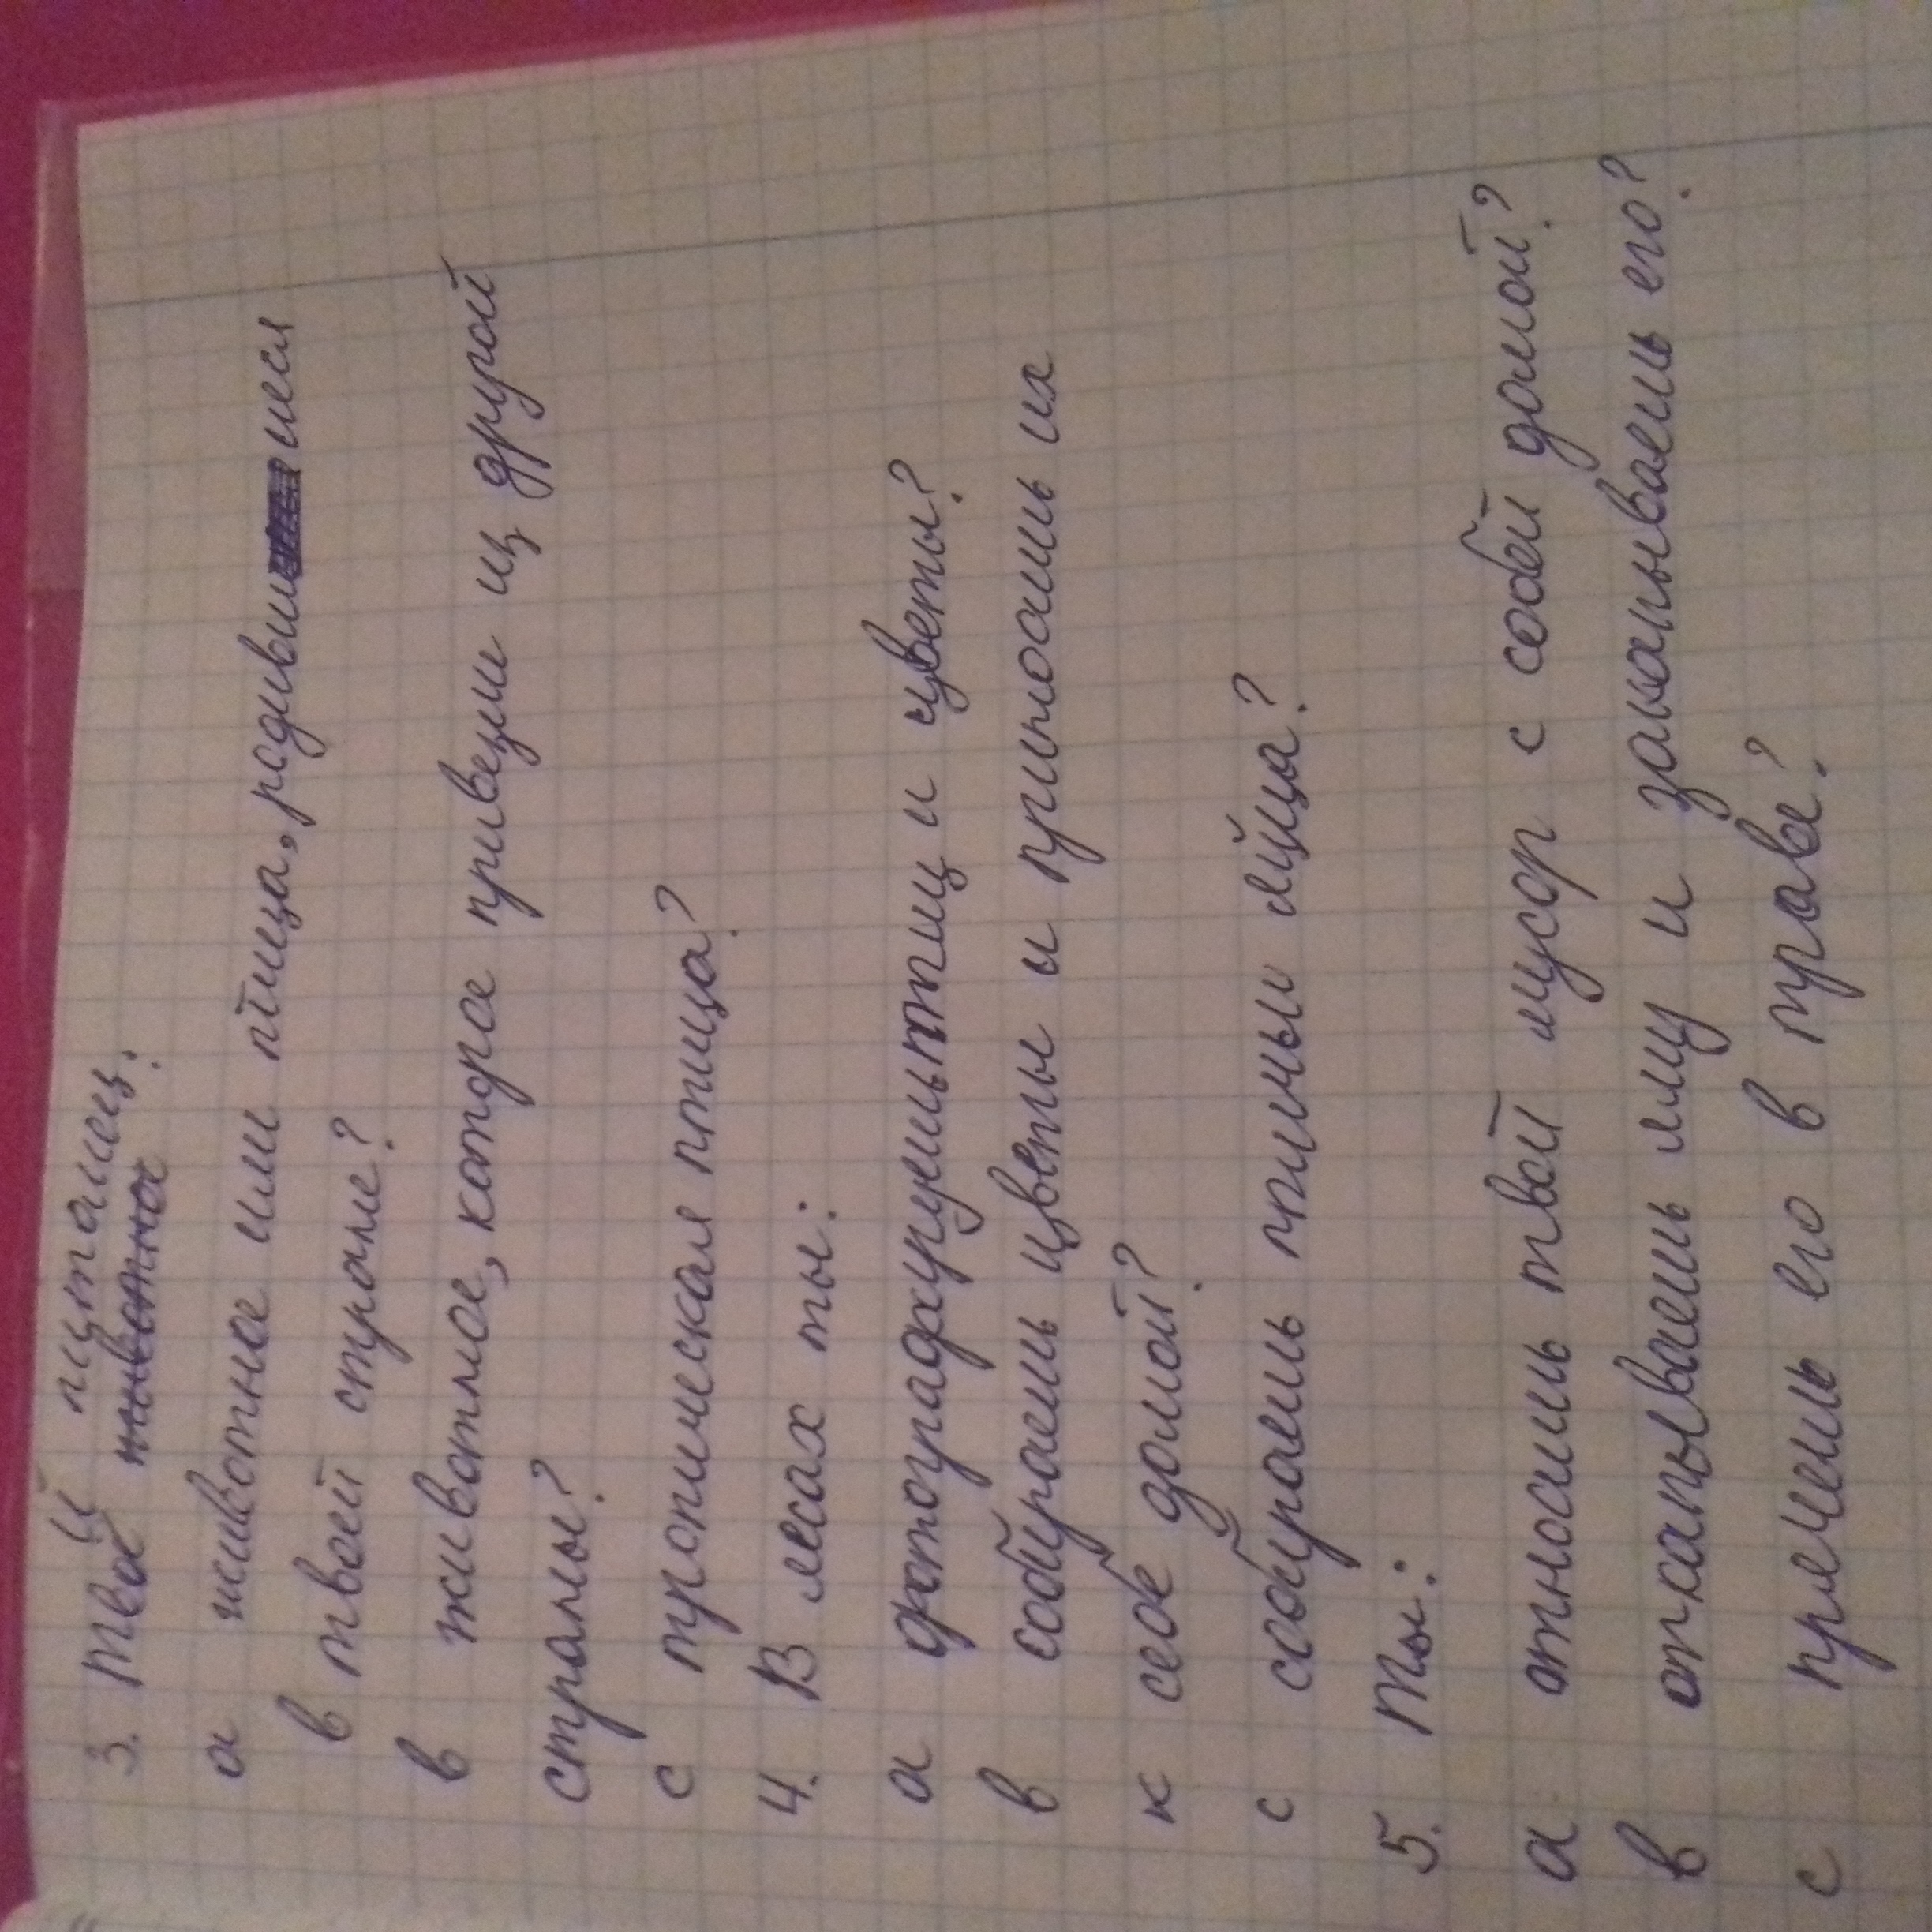 3. Твой питомец:
а животное или птица, родившися
в твоей стране?
в животное, которое привезли из другой
страны?
с тропическая птица?
4. В лесах ты:
а фотографируешь птиц и цветы?
в собираешь цветы и приносишь их
к себе домой?
с собираешь птичьи яйца?
5. Ты:
а относишь твой мусор с собой домой?
в откапываешь яму и закапываешь его?
с прячешь его в траве?